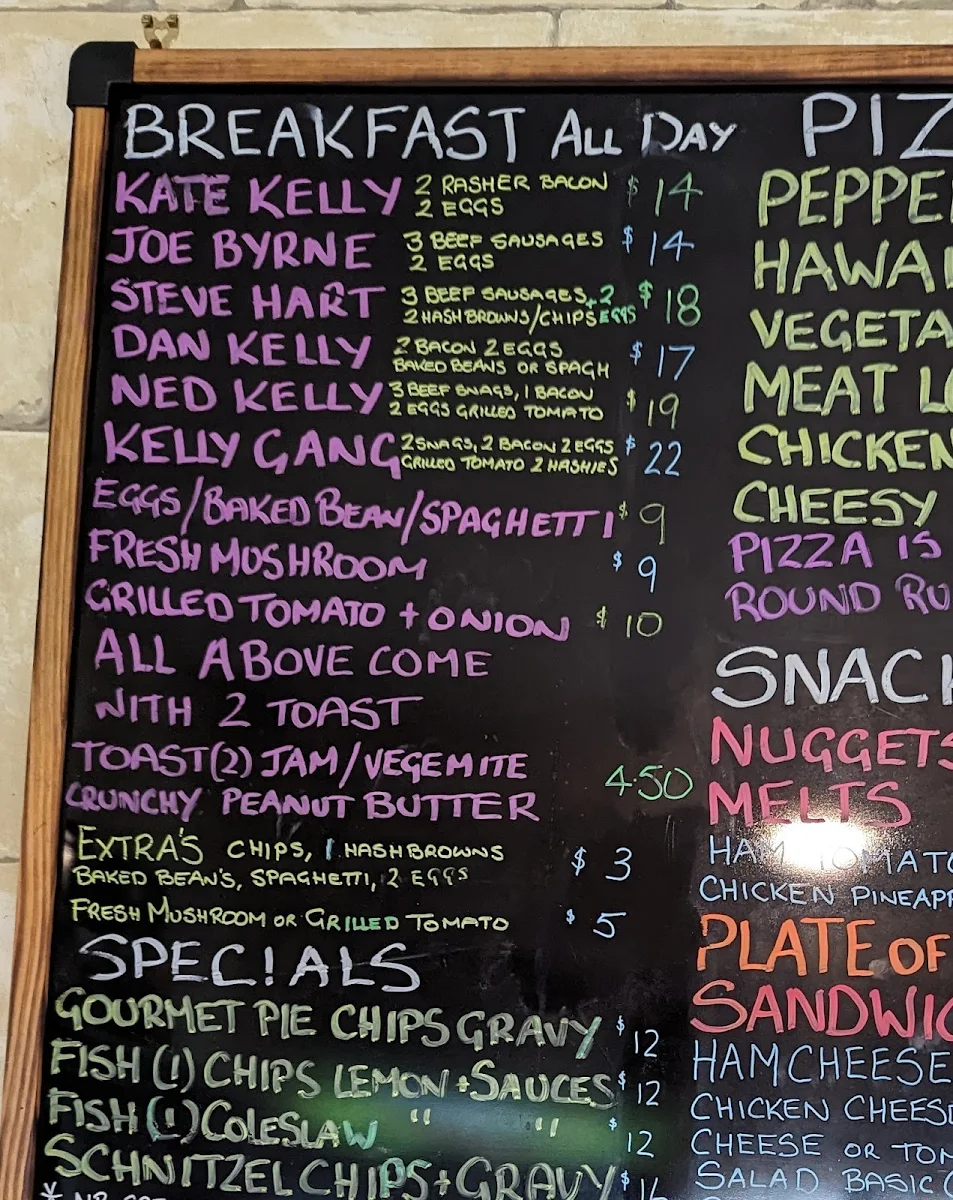 BREAKFAST ALL DAY
KATE KELLY 2 RASHER BACON $14
2 EGGS
JOE BYRNE 3 BEEF SAUSAGES $14
2 EGGS
STEVE HART 3 BEEF SAUSAGES + 2 $18
2 HASHBROWNS/CHIPS EGGS
DAN KELLY 2 BACON 2 EGGS $17
BAKED BEANS OR SPAGH
NED KELLY 3 BEEF SNAGS, 1 BACON $19
2 EGGS GRILLED TOMATO
KELLY GANG 2 SNAGS, 2 BACON 2 EGGS $22
GRILLED TOMATO 2 HASHIES
EGGS/BAKED BEAN/SPAGHETTI $9
FRESH MUSHROOM $9
GRILLED TOMATO + ONION $10
ALL ABOVE COME
WITH 2 TOAST
TOAST(2) JAM/VEGEMITE
CRUNCHY PEANUT BUTTER 4.50
EXTRA'S CHIPS, 1 HASHBROWNS $3
BAKED BEAN'S, SPAGHETTI, 2 EGGS
FRESH MUSHROOM OR GRILLED TOMATO $5
SPEC!ALS
GOURMET PIE CHIPS GRAVY $12
FISH (1) CHIPS LEMON + SAUCES $12
FISH (1) COLESLAW " " $12
SCHNITZEL CHIPS + GRAVY $
PIZ
PEPPE
HAWAI
VEGETA
MEAT LO
CHICKEN
CHEESY
PIZZA IS
ROUND RU
SNACK
NUGGETS
MELTS
CHICKEN PINEAPP
PLATE OF
SANDWIC
HAM CHEESE
CHICKEN CHEES
CHEESE OR TOM
SALAD BASIC